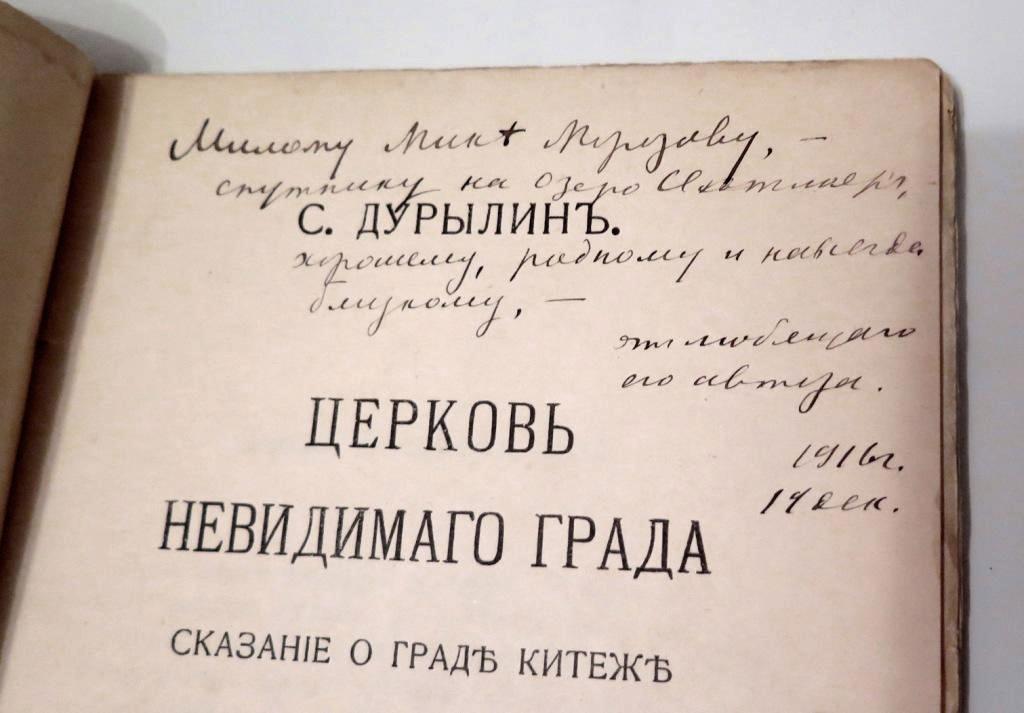 Милому Микѣ Морозову, —
спутнику на озеро Свѣтлояръ,
С. ДУРЫЛИНЪ.
хорошему, родному и навсегда
близкому, —
отъ любящаго
его автора.
ЦЕРКОВЬ
1916 г.
14 дек.
НЕВИДИМАГО ГРАДА
СКАЗАНІЕ О ГРАДѢ КИТЕЖѢ